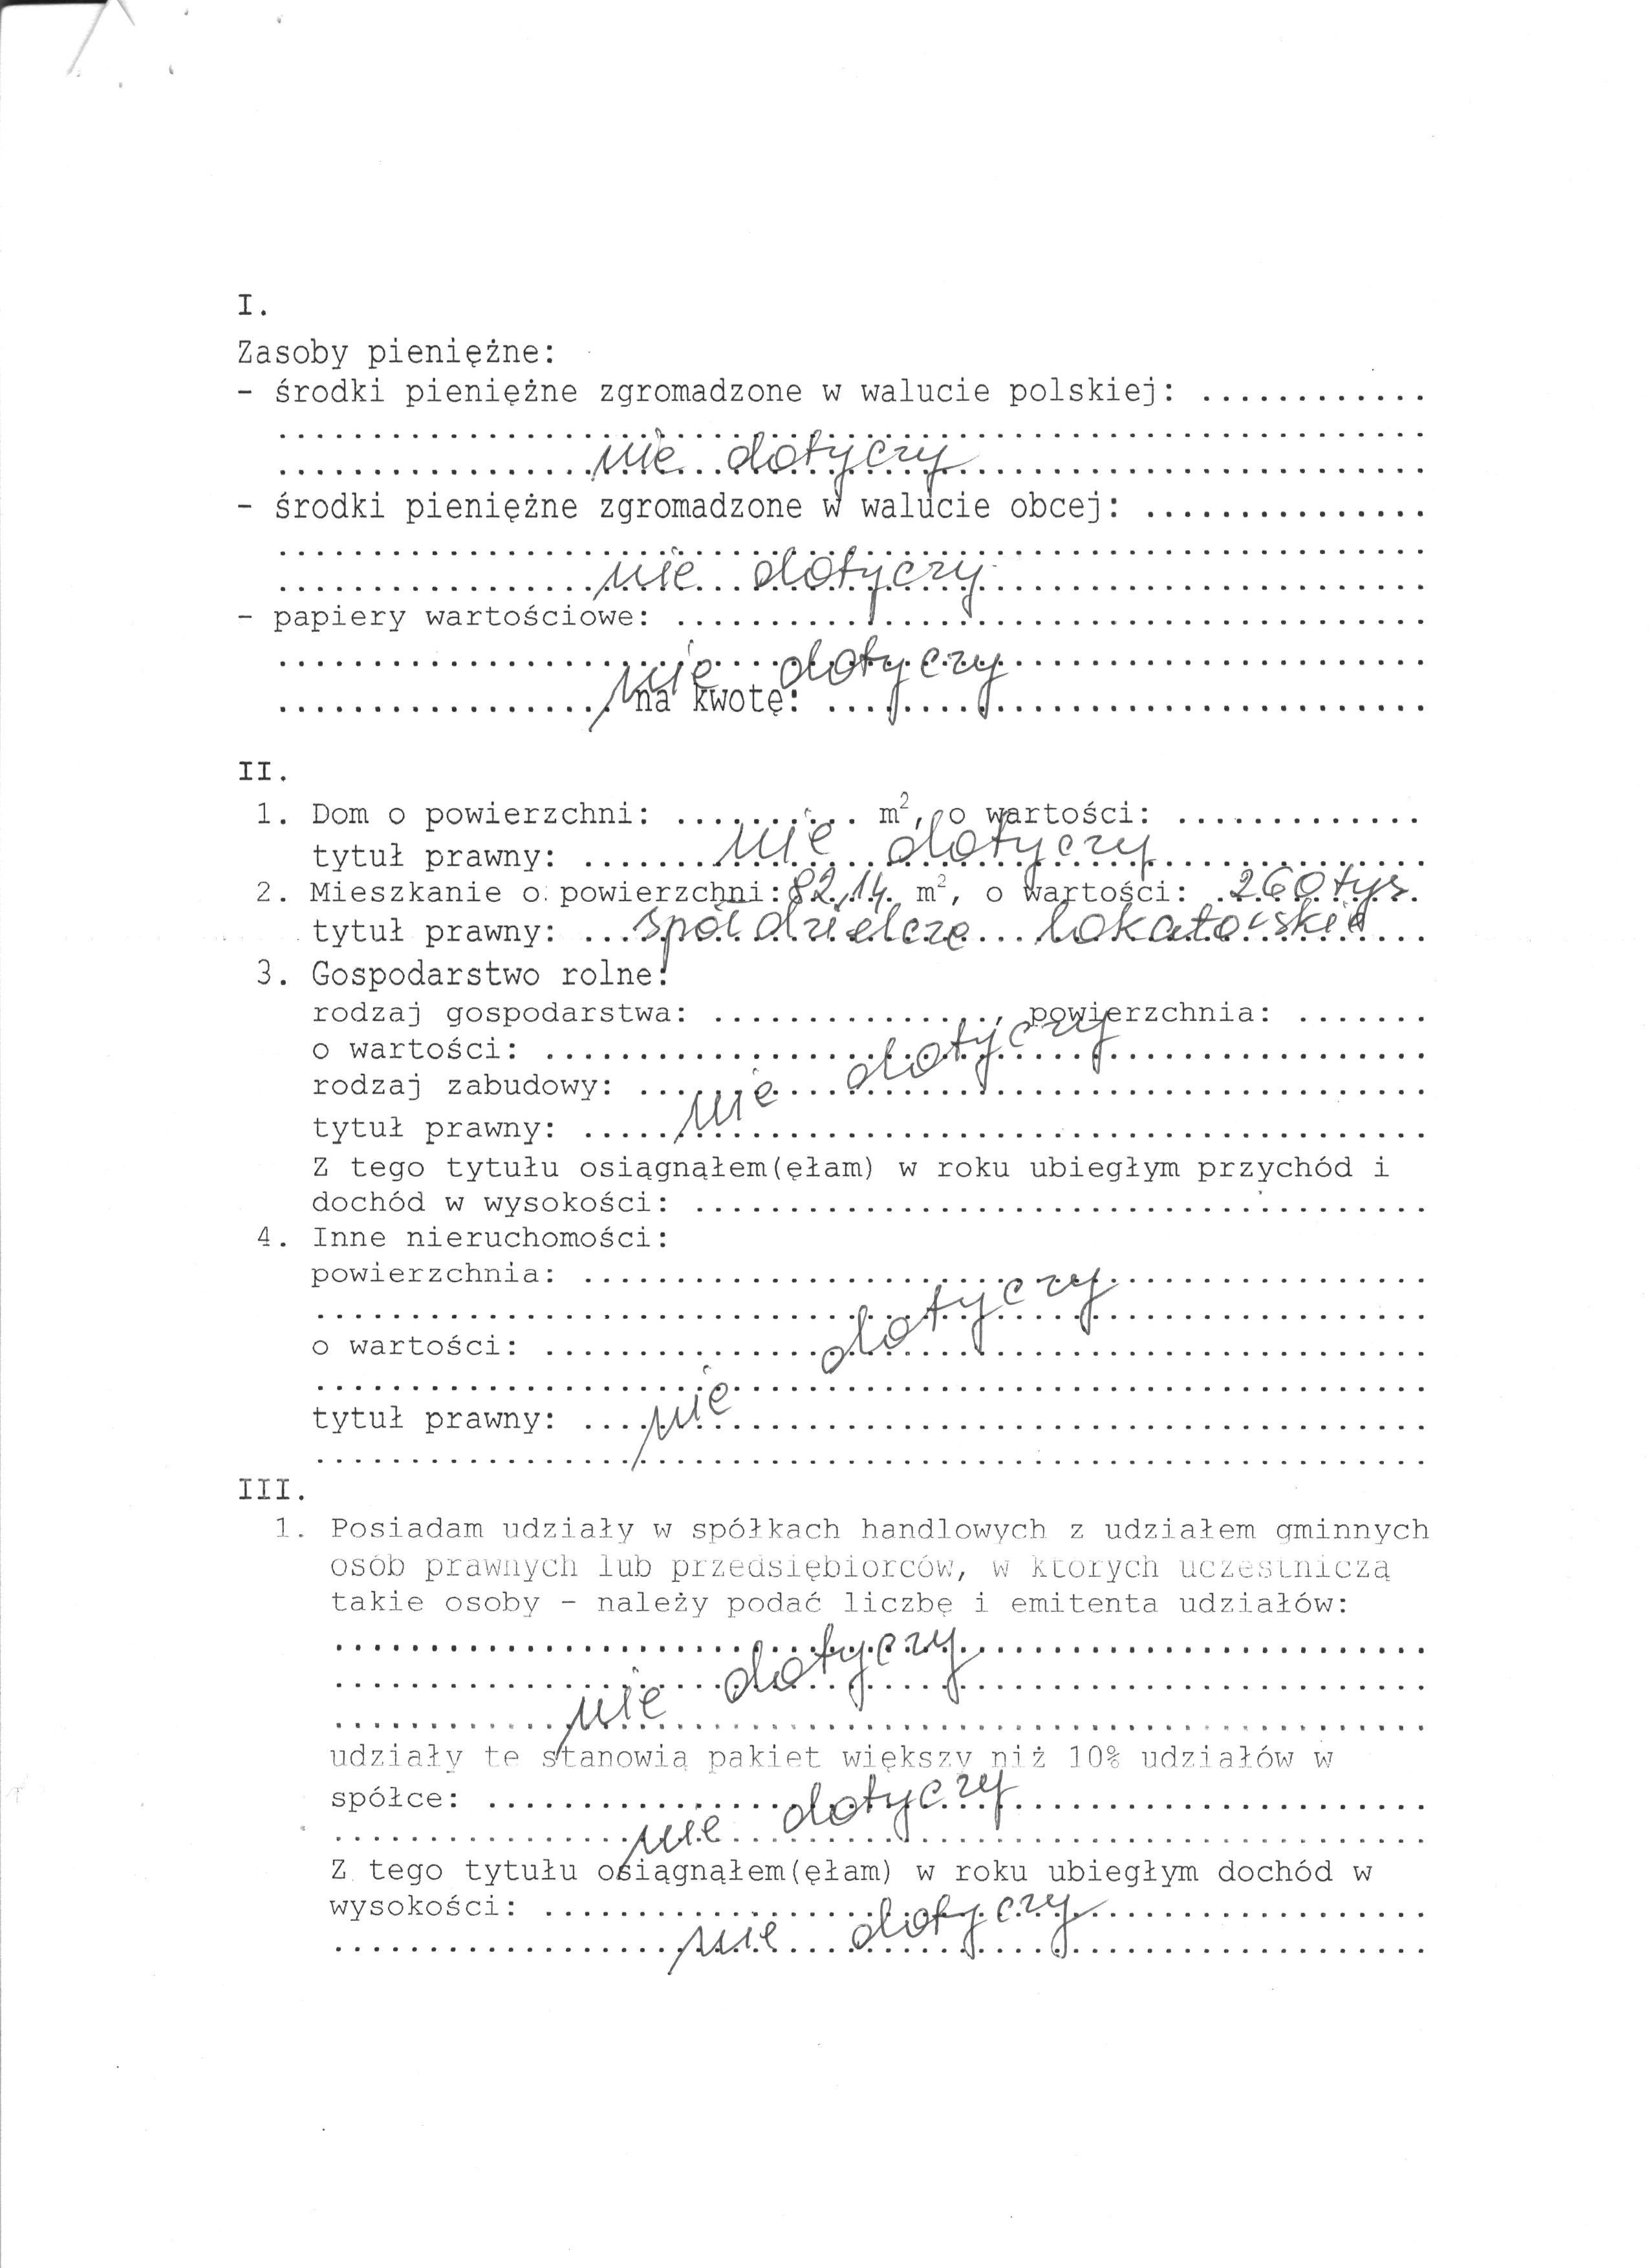 I.
Zasoby pieniężne:
- środki pieniężne zgromadzone w walucie polskiej: ............
nie dotyczy
- środki pieniężne zgromadzone w walucie obcej: ...............
nie dotyczy
- papiery wartościowe: ........................................
nie dotyczy
na kwotę: ................................
II.
1. Dom o powierzchni: .......... m², o wartości: .............
nie dotyczy
tytuł prawny: .............................................
2. Mieszkanie o powierzchni: 82,14 m², o wartości: 260 tys.
tytuł prawny: spółdzielcze lokatorskie
3. Gospodarstwo rolne:
rodzaj gospodarstwa: ..............., powierzchnia: .......
o wartości: ...............................................
nie dotyczy
rodzaj zabudowy: ..........................................
tytuł prawny: .............................................
Z tego tytułu osiągnąłem(ęłam) w roku ubiegłym przychód i
dochód w wysokości: .......................................
4. Inne nieruchomości:
powierzchnia: .............................................
nie dotyczy
o wartości: ...............................................
tytuł prawny: .............................................
III.
1. Posiadam udziały w spółkach handlowych z udziałem gminnych
osób prawnych lub przedsiębiorców, w których uczestniczą
takie osoby - należy podać liczbę i emitenta udziałów:
nie dotyczy
udziały te stanowią pakiet większy niż 10% udziałów w
spółce: ..................................................
nie dotyczy
Z tego tytułu osiągnąłem(ęłam) w roku ubiegłym dochód w
wysokości: ...............................................
nie dotyczy